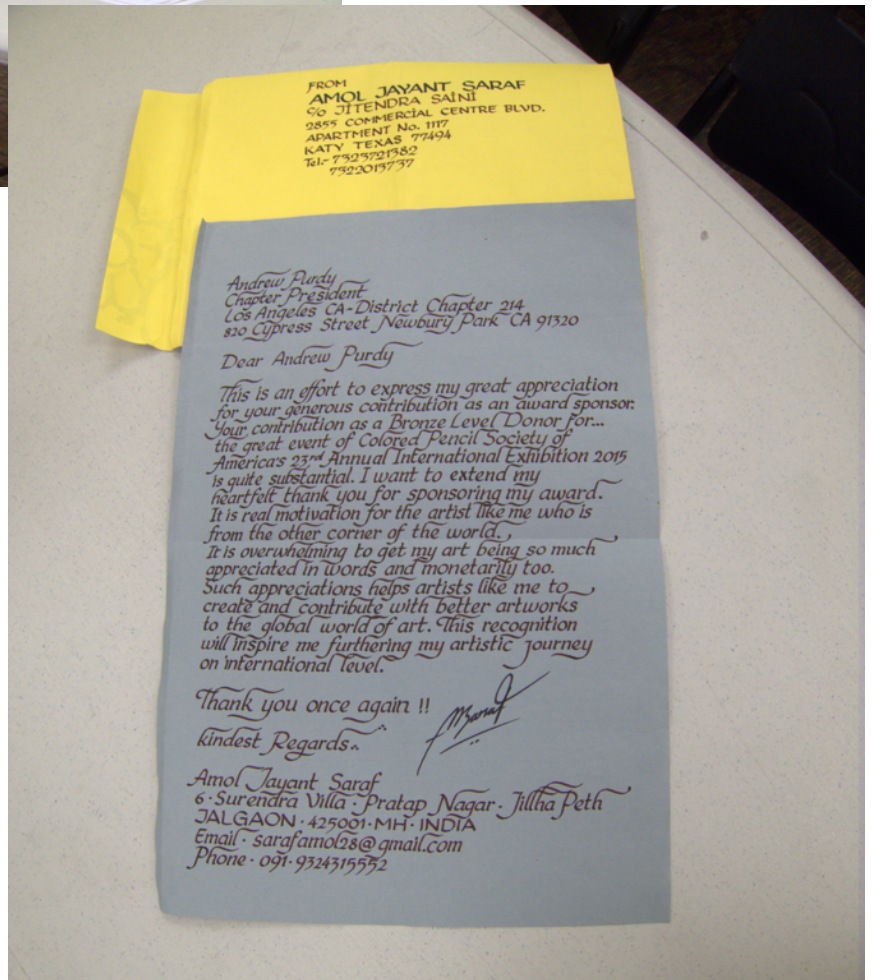 FROM
AMOL JAYANT SARAF
C/o JITENDRA SAINI
2855 COMMERCIAL CENTRE BLVD.
APARTMENT No. 1117
KATY TEXAS 77494
Tel:- 7323721382
7322013737
Andrew Purdy
Chapter President
Los Angeles CA-District Chapter 214
820 Cypress Street Newbury Park CA 91320
Dear Andrew Purdy
This is an effort to express my great appreciation
for your generous contribution as an award sponsor.
Your contribution as a Bronze Level Donor for...
the great event of Colored Pencil Society of
America's 23rd Annual International Exhibition 2015
is quite substantial. I want to extend my
heartfelt thank you for sponsoring my award.
It is real motivation for the artist like me who is
from the other corner of the world.
It is overwhelming to get my art being so much
appreciated in words and monetarily too.
Such appreciations helps artists like me to
create and contribute with better artworks
to the global world of art. This recognition
will inspire me furthering my artistic journey
on international level.
Thank you once again !!
kindest Regards..
Amol Jayant Saraf
6 · Surendra Villa · Pratap Nagar · Jillha Peth
JALGAON · 425001 · MH · INDIA
Email · sarafamol28@gmail.com
Phone · 091 · 9324315552